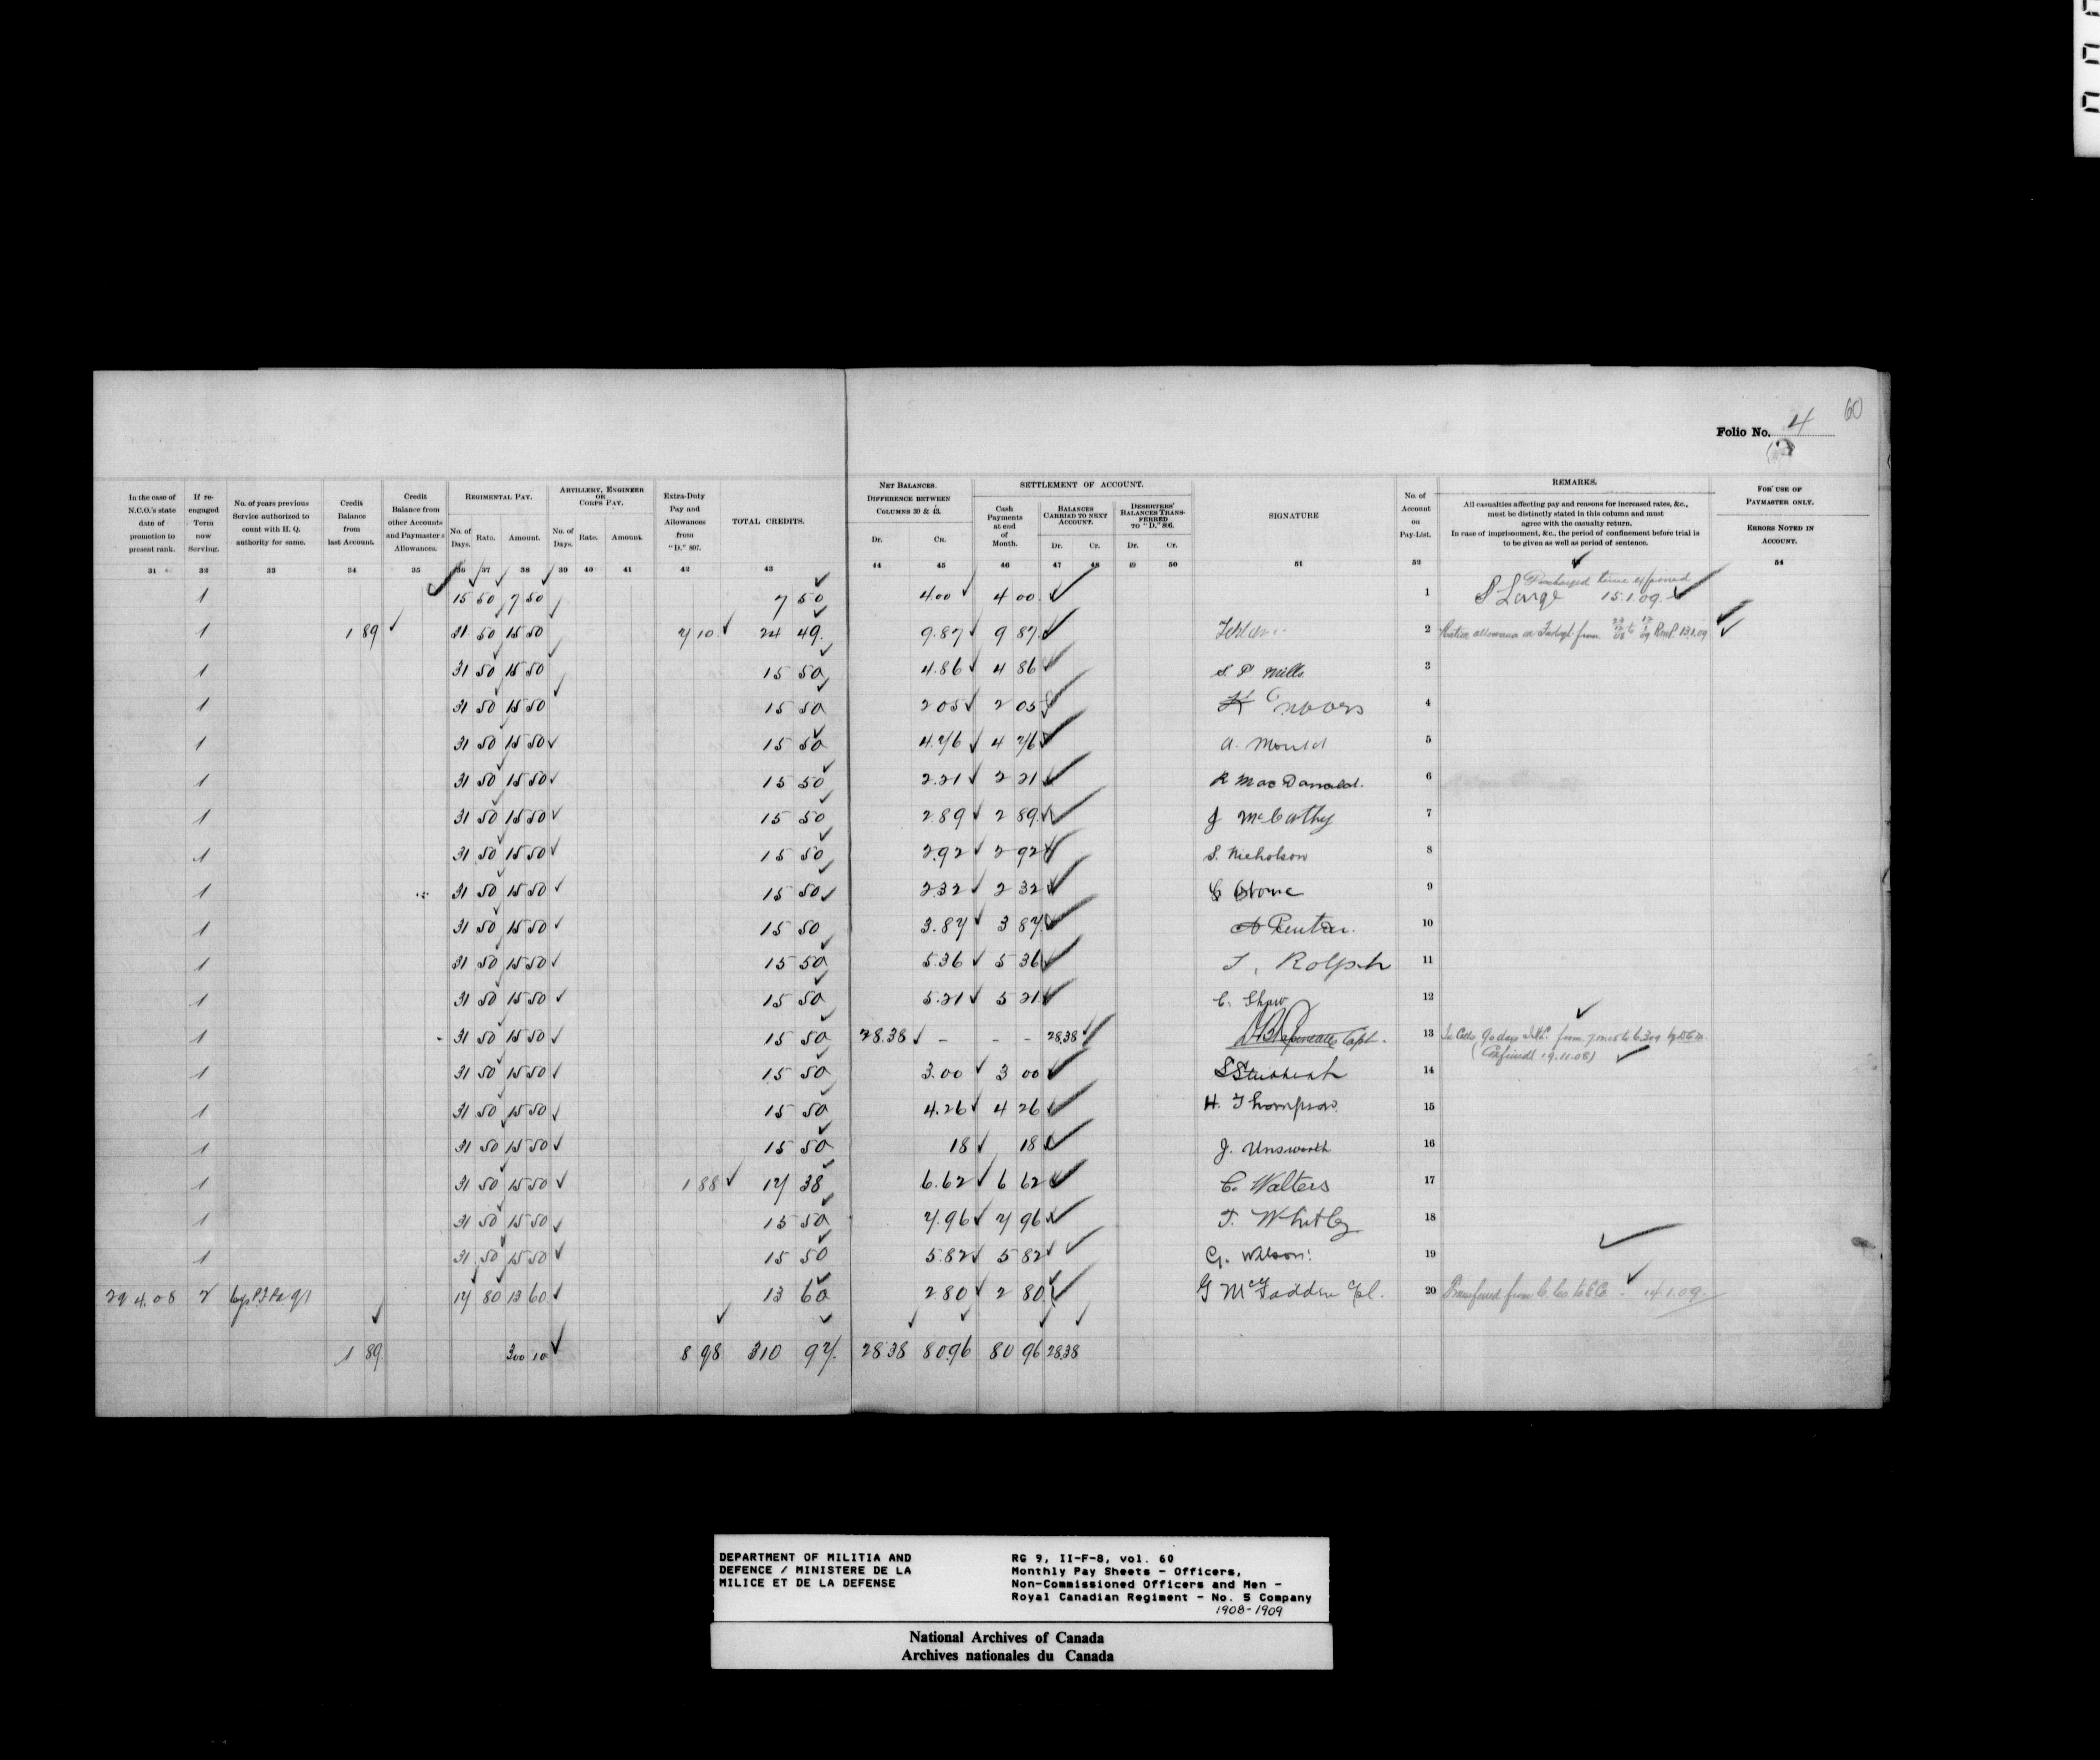 Folio No. 4
60
In the case of N.C.O.'s state date of promotion to present rank.
If re-engaged Term now Serving.
No. of years previous Service authorized to count with H. Q. authority for same.
Credit Balance from last Account.
Credit Balance from other Accounts and Paymasters Allowances.
REGIMENTAL PAY.
No. of Days. Rate. Amount.
ARTILLERY, ENGINEER OR CORPS PAY.
No. of Days. Rate. Amount
Extra-Duty Pay and Allowances from "D," 807.
TOTAL CREDITS.
NET BALANCES.
DIFFERENCE BETWEEN COLUMNS 30 & 43.
Dr. Cr.
SETTLEMENT OF ACCOUNT.
Cash Payments at end of Month.
BALANCES CARRIED TO NEXT ACCOUNT.
Dr. Cr.
DESERTERS' BALANCES TRANSFERRED TO "D," 806.
Dr. Cr.
SIGNATURE
No. of Account on Pay-List.
REMARKS.
All casualties affecting pay and reasons for increased rates, &c.,
must be distinctly stated in this column and must
agree with the casualty return.
In case of imprisonment, &c., the period of confinement before trial is
to be given as well as period of sentence.
FOR USE OF PAYMASTER ONLY.
ERRORS NOTED IN ACCOUNT.
31 32 33 34 35 36 37 38 39 40 41 42 43 44 45 46 47 48 49 50 51 52 54
1 15 50 7 50 7 50 4.00 4 00 1 S Large Discharged time expired 15.1.09.
1 1 89 31 50 15 50 7 10 24 49 9.87 9 87 2 Ration allowance from to 13.1.09
1 31 50 15 50 15 50 4.86 4 86 S. P. Mills 3
1 31 50 15 50 15 50 2 05 2 05 4
1 31 50 15 50 15 50 4.76 4 76 A. Mould 5
1 31 50 15 50 15 50 2.21 2 21 R MacDonald. 6
1 31 50 15 50 15 50 2 89 2 89 J McCarthy 7
1 31 50 15 50 15 50 2.92 2 92 S. Nicholson 8
1 31 50 15 50 15 50 2.32 2 32 9
1 31 50 15 50 15 50 3.87 3 87 10
1 31 50 15 50 15 50 5.36 5 36 Rolph 11
1 31 50 15 50 15 50 5.21 5 21 C. Shaw 12
1 31 50 15 50 15 50 28.38 - - - 28.38 Capt. 13 In Cells 90 days from to 6.3.09 by D.C.M.
(Confined 19.11.08)
1 31 50 15 50 15 50 3.00 3 00 14
1 31 50 15 50 15 50 4.26 4 26 H. Thompson 15
1 31 50 15 50 15 50 18 18 J. Unsworth 16
1 31 50 15 50 1 88 17 38 6.62 6 62 C. Walters 17
1 31 50 15 50 15 50 7.96 7 96 T. Whitley 18
1 31 50 15 50 15 50 5.82 5 82 G. Wilson 19
29.4.08 2 17 80 13 60 13 60 2 80 2 80 G McFadden Cpl. 20 Transferred from 14.1.09.
1 89 300 10 8 98 310 97 28 38 80.96 80 96 28.38
DEPARTMENT OF MILITIA AND
DEFENCE / MINISTERE DE LA
MILICE ET DE LA DEFENSE
RG 9, II-F-8, vol. 60
Monthly Pay Sheets - Officers,
Non-Commissioned Officers and Men -
Royal Canadian Regiment - No. 5 Company
1908-1909
National Archives of Canada
Archives nationales du Canada